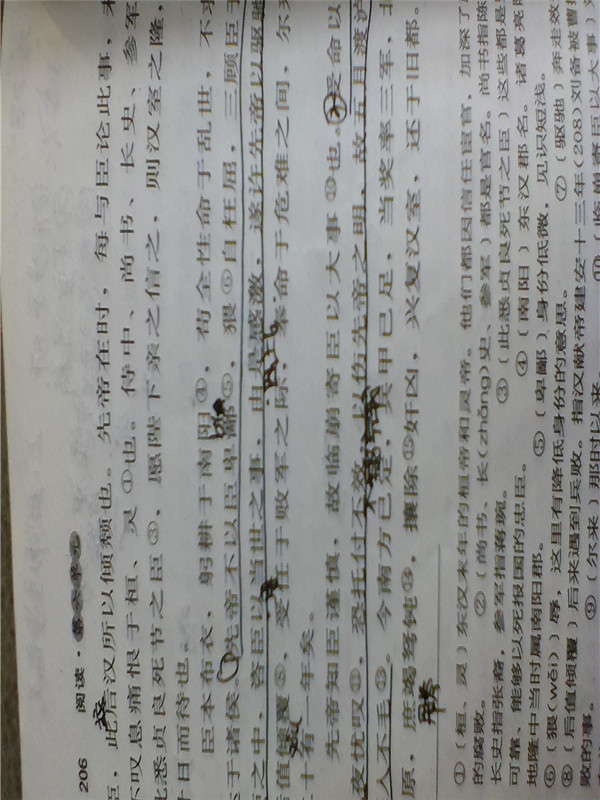 206 阅读·
臣，此后汉所以倾颓也。先帝在时，每与臣论此事，未
不叹息痛恨于桓、灵①也。侍中、尚书、长史、参军
此悉贞良死节之臣③，愿陛下亲之信之，则汉室之隆，
计日而待也。
臣本布衣，躬耕于南阳④，苟全性命于乱世，不求
于诸侯。先帝不以臣卑鄙⑤，猥⑥自枉屈，三顾臣于
之中，咨臣以当世之事，由是感激，遂许先帝以驱驰
值倾覆⑧，受任于败军之际，奉命于危难之间，尔来
十有一年矣。
先帝知臣谨慎，故临崩寄臣以大事⑩也。受命以
夜忧叹⑪，恐托付不效，以伤先帝之明，故五月渡泸
入不毛。今南方已定，兵甲已足，当奖率三军，北
原，庶竭驽钝，攘除奸凶，兴复汉室，还于旧都。
①（桓、灵）东汉末年的桓帝和灵帝。他们都因信任宦官，加深了
的腐败。 ②（尚书、长(zhǎng)史、参军）都是官名。尚书指陈
长史指张裔，参军指蒋琬。 ③（此悉贞良死节之臣）这些都是
可靠、能够以死报国的忠臣。 ④（南阳）东汉郡名。诸葛亮
地隆中当时属南阳郡。 ⑤（卑鄙）身份低微，见识短浅。
⑥（猥(wěi)）辱，这里有降低身份的意思。 ⑦（驱驰）奔走效
⑧（后值倾覆）后来遇到兵败。指汉献帝建安十三年(208)刘备被曹操
败的事。 ⑨（尔来）那时以来。 ⑩（临崩寄臣以大事）